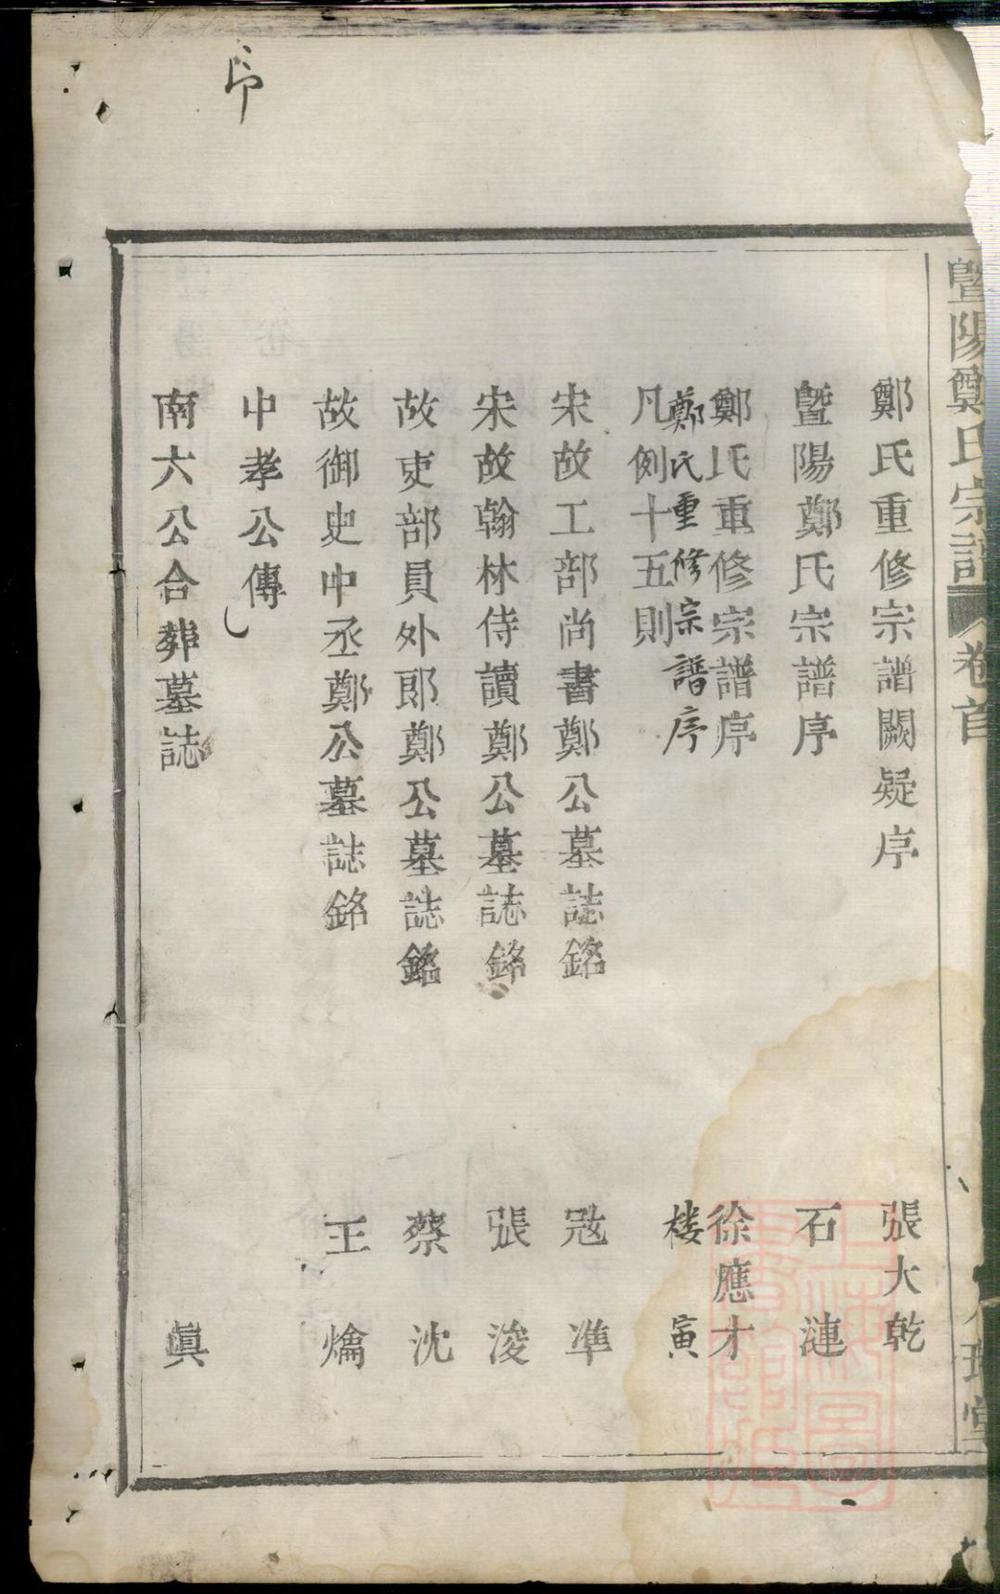 暨陽鄭氏宗譜 卷首
鄭氏重修宗譜闕疑序 張大乾
暨陽鄭氏宗譜序 石漣
鄭氏重修宗譜序 徐應才
鄭氏重修宗譜序 楼寅
凡例十五則
宋故工部尚書鄭公墓誌銘 寇準
宋故翰林侍讀鄭公墓誌銘 張浚
故吏部員外郎鄭公墓誌銘 蔡沈
故御史中丞鄭公墓誌銘 王爚
中孝公傳
南六公合葬墓誌 眞